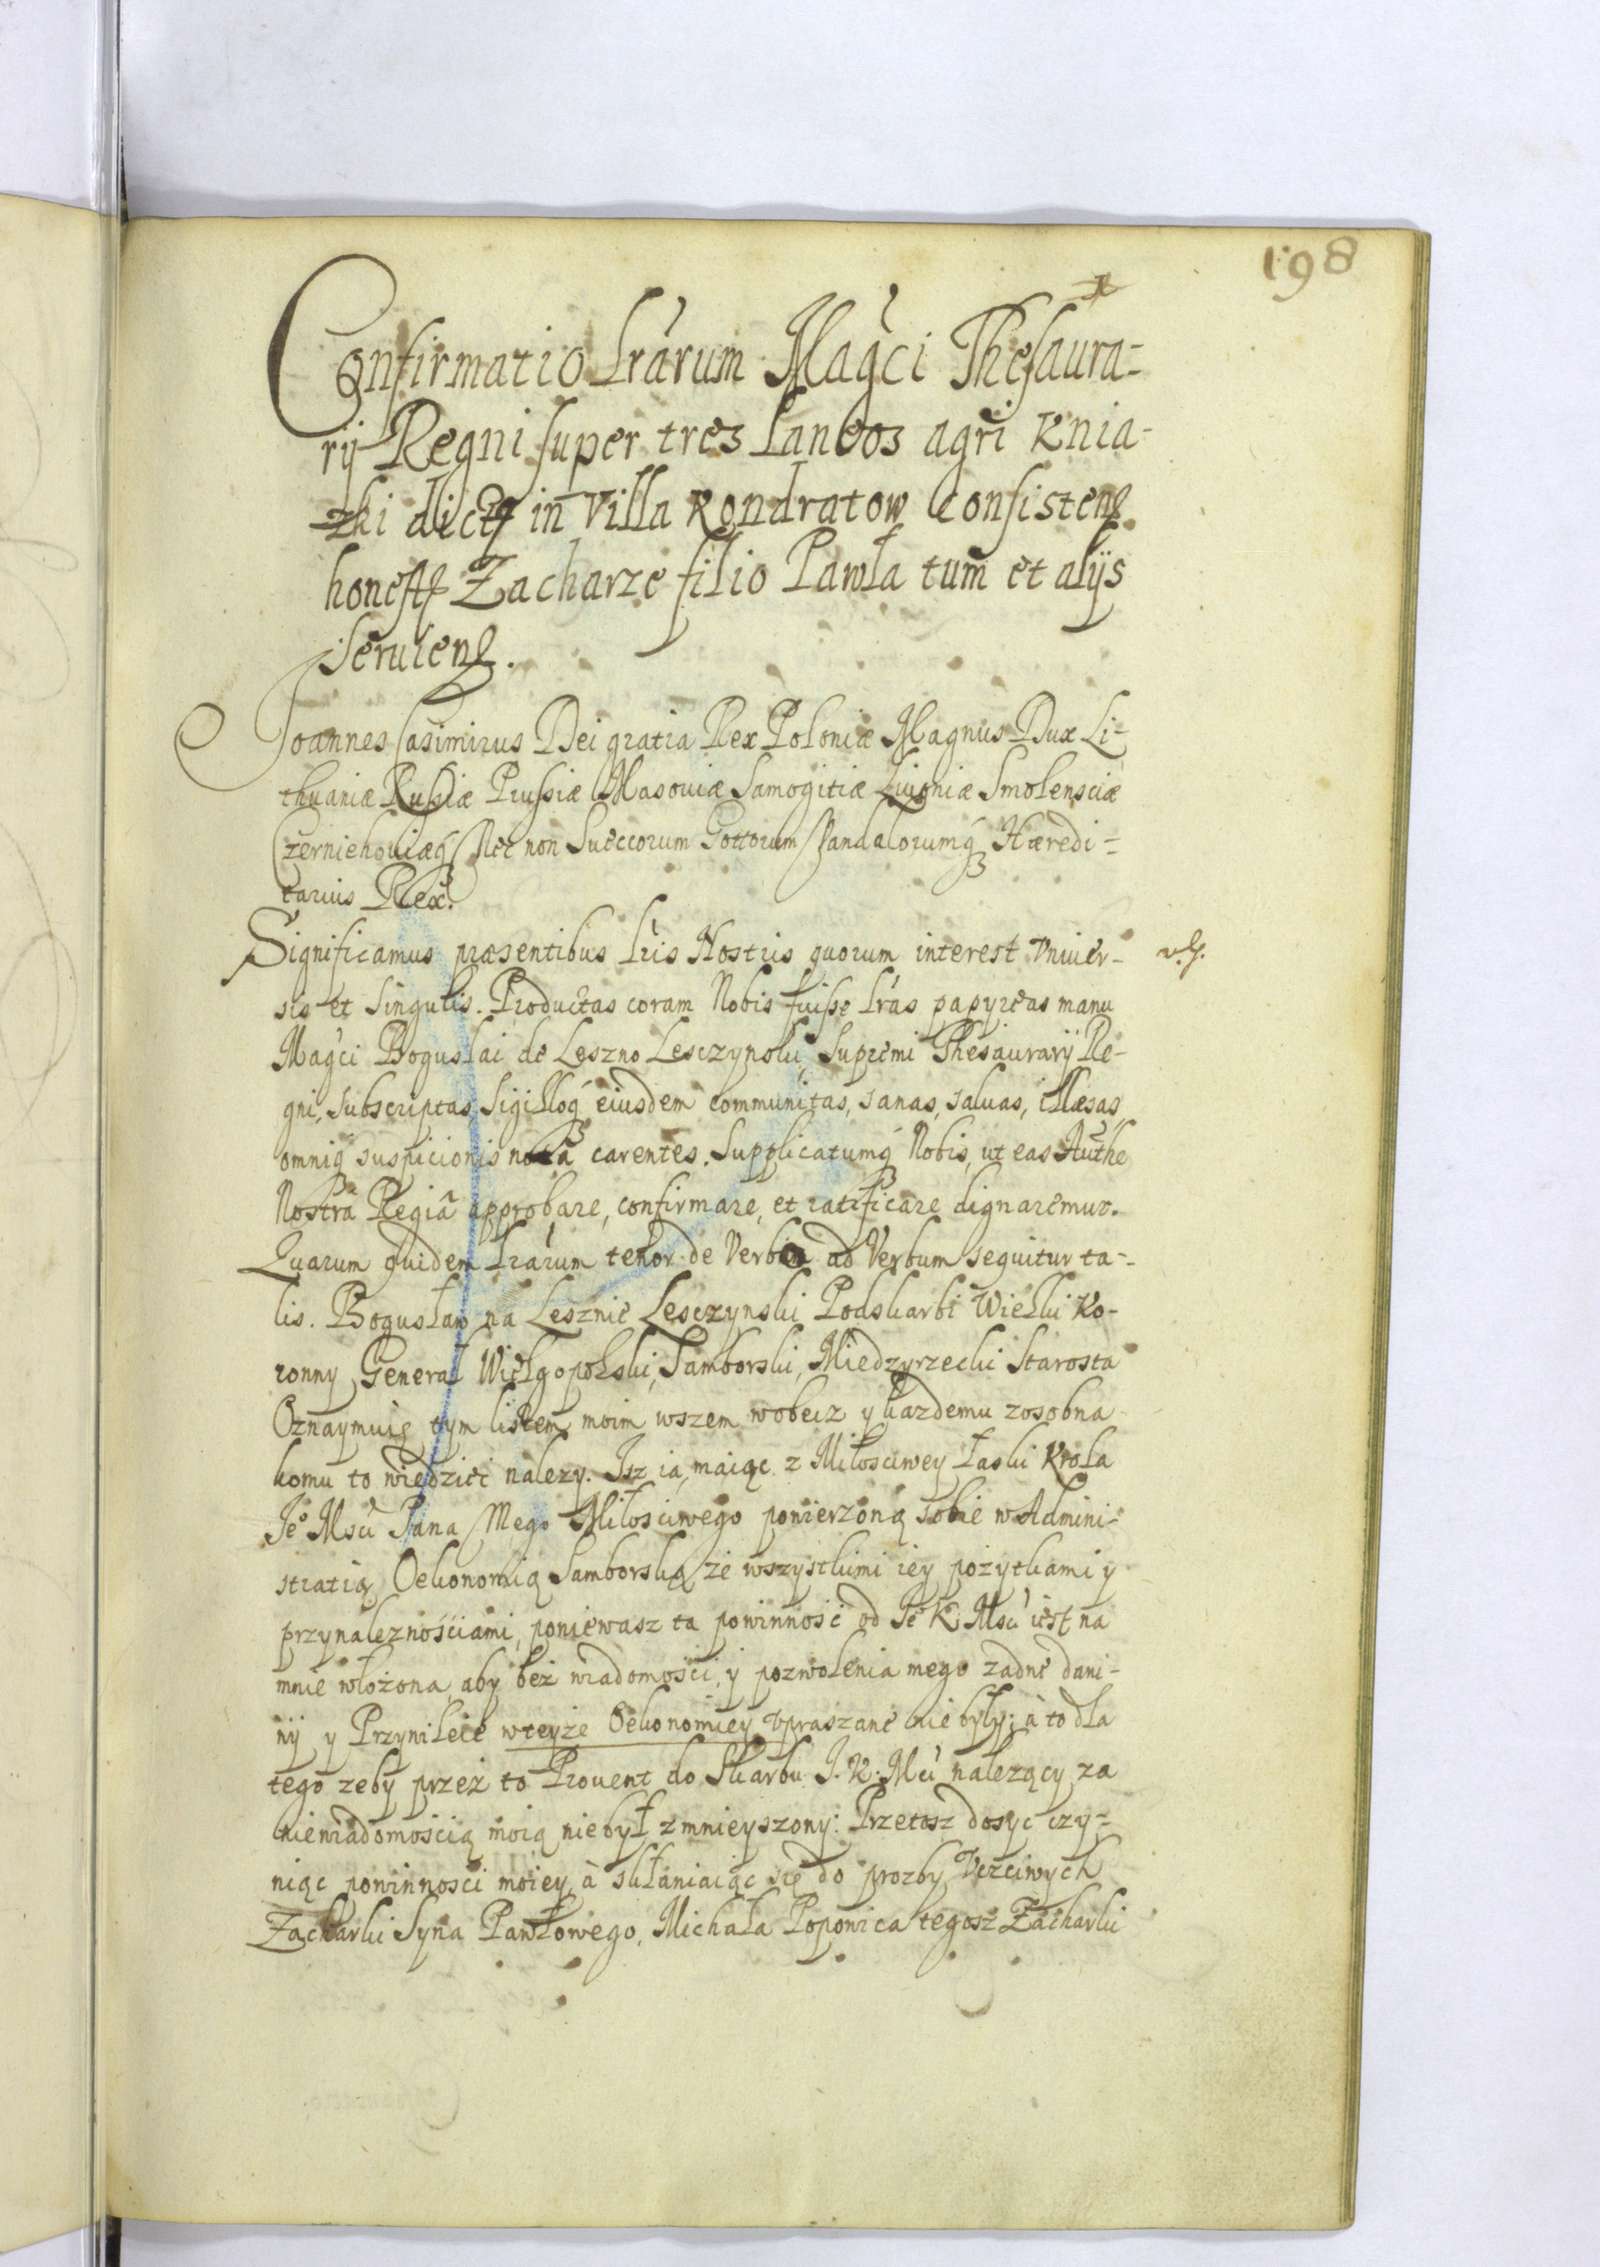 198
Confirmatio Lrárum Magci Thesaura-
rij Regni super tres Laneos agri Knia-
zki dict in Villa Kondratow consisten
honest Zacharze filio Pawła tum et alijs
seruien.
Joannes Casimirus Dei gratia Rex Poloniæ Magnus Dux Li-
thuaniæ Russiæ Prussiæ Masouiæ Samogitiæ Liuoniæ Smolensciæ
Czerniehouiæq Nec non Sueccorum Gottorum Vandalorumq Hæredi-
tarius Rex.
Significamus præsentibus Lris Nostris quorum interest Vniuer-
sis et Singulis. Productas coram Nobis fuisse Lrás papyreas manu
Magci Boguslai de Leszno Lesczynski Supremi Thesaurarij Re-
gni, subscriptas Sigilloq eiusdem communitas, sanas, saluas, illæsas,
omniq suspicionis notâ carentes. Supplicatumq Nobis, ut eas Authe
Nostrâ Regiâ approbare, confirmare, et ratificare dignaremur.
Quarum quidem Lrárum tenor de Verbo ad Verbum sequitur ta-
lis. Bogusław na Lesznie Lesczynski Podskarbi Wielki Ko-
ronny Generał Wielgopolski, Samborski, Miedzyrzecki Starosta
Oznaymuię tym listem moim wszem wobecz y kazdemu zosobna
komu to wiedziec nalezy. Isz ia, maiąc z Miłosciwey łaski Krola
Je° Msci Pana Mego Miłosciwego powierzoną sobie w Admini-
stratią Oekonomią Samborską ze wszystkimi iey pożytkami y
przynależnościami, poniewasz ta powinność od Je° K Msci iest na
mnie włożona, aby beż wiadomości, y pozwolenia mego zadne dani-
ny y Przywileie wteyże Oekonomiey Vpraszane nie były; à to dla
tego zeby przeż to Prouent do Skarbu J. K. Mci nalezący za
niewiadomoscią moią niebył zmnieyszony: Przetosz dosyc czy-
niąc powinnosci moiey, à skłaniaiąc się do prozby Vczciwych
Zacharki Syna Pawłowego, Michała Poponica tegosz Zacharki